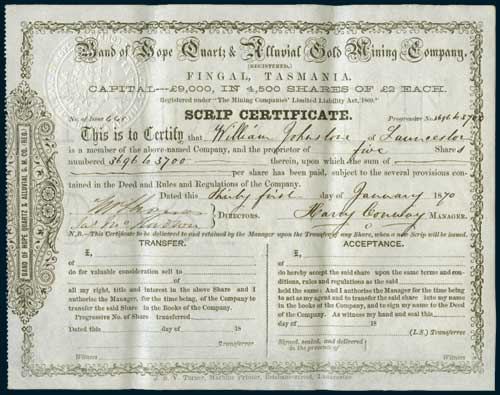 Band of Hope Quartz & Alluvial Gold Mining Company.
(REGISTERED),
FINGAL, TASMANIA.
CAPITAL—£9,000, IN 4,500 SHARES OF £2 EACH.
Registered under "The Mining Companies' Limited Liability Act, 1869."
SCRIP CERTIFICATE.
No. of Issue 448 Progressive No. 3696 to 3700
This is to Certify that William Johnstone of Launceston
is a member of the above-named Company, and the proprietor of five Shares
numbered 3696 to 3700 therein, upon which the sum of
per share has been paid, subject to the several provisions con-
tained in the Deed and Rules and Regulations of the Company.
Dated this thirty first day of January 1870
DIRECTORS. Harry Conway MANAGER.
N.B.—This Certificate to be delivered to and retained by the Manager upon the Transfer of any Share, when a new Scrip will be issued.
BAND OF HOPE QUARTZ & ALLUVIAL G. M. CO. (REG.)
TRANSFER.
I,
of
do for valuable consideration sell to
of
all my right, title and interest in the above Share and I
authorise the Manager, for the time being, of the Company to
transfer the said Share in the Books of the Company.
Progressive No. of Share transferred
Dated this day of 18
Transferror
Witness
ACCEPTANCE.
I,
of
do hereby accept the said share upon the same terms and condi-
tions, rules and regulations as the said
held the same: And I authorise the Manager for the time being
to act as my agent and to transfer the said share into my name
in the books of the Company, and to sign my name to the deed
of the Company. As witness my hand and seal this
day of 18
(L.S.) Transferree
Signed, sealed, and delivered
in the presence of
Witness
J. S. V. Turner, Machine Printer, Brisbane-street, Launceston